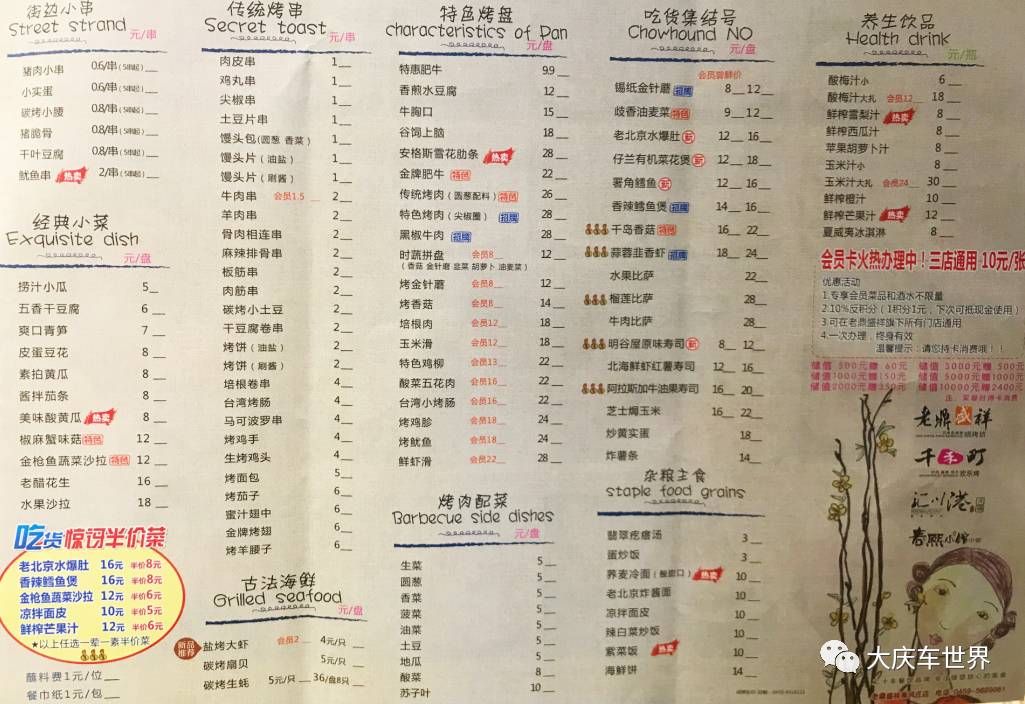 街边小串
Street strand 元/串
猪肉小串 0.6/串(5串起)
小实蛋 0.6/串(5串起)
碳烤小腰 0.8/串(5串起)
猪脆骨 0.8/串(5串起)
干叶豆腐 0.8/串(5串起)
鱿鱼串 热卖 2/串(5串起)
经典小菜
Exquisite dish
元/盘
捞汁小瓜 5
五香干豆腐 6
爽口青笋 7
皮蛋豆花 8
素拍黄瓜 8
酱拌茄条 8
美味酸黄瓜 热卖 8
椒麻蟹味菇 特色 12
金枪鱼蔬菜沙拉 特色 12
老醋花生 16
水果沙拉 18
吃货惊讶半价菜
老北京水爆肚 16元 半价8元
香辣鳕鱼煲 16元 半价8元
金枪鱼蔬菜沙拉 12元 半价6元
凉拌面皮 10元 半价5元
鲜榨芒果汁 12元 半价6元
★以上任选一荤一素半价菜
蘸料费1元/位
餐巾纸1元/包
传统烤串
Secret toast 元/串
肉皮串 1
鸡丸串 1
尖椒串 1
土豆片串 1
馒头包(圆葱 香菜) 1
馒头片(油盐) 1
馒头片(刷酱) 1
牛肉串 会员1.5 2
羊肉串 2
骨肉相连串 2
麻辣排骨串 2
板筋串 2
肉筋串 2
碳烤小土豆 2
干豆腐卷串 2
烤饼(油盐) 2
烤饼(刷酱) 2
培根卷串 4
台湾烤肠 4
马可波罗串 4
烤鸡手 4
生烤鸡头 4
烤面包 5
烤茄子 6
蜜汁翅中 6
金牌烤翅 6
烤羊腰子 6
古法海鲜
Grilled seafood 元/盘
新品推荐 盐烤大虾 会员2 4元/只
碳烤扇贝 5元/只
碳烤生蚝 5元/只 36/盘8只
特色烤盘
characteristics of Pan
元/盘
特惠肥牛 9.9
香煎水豆腐 12
牛胸口 15
谷饲上脑 18
安格斯雪花肋条 热卖 28
金牌肥牛 特色 22
传统烤肉(圆葱配料) 特色 26
特色烤肉(尖椒圈) 招牌 28
黑椒牛肉 招牌 28
时蔬拼盘 会员8 12
(香菇 金针磨 韭菜 胡萝卜 油麦菜)
烤金针蘑 会员8 12
烤香菇 会员8 14
培根肉 会员12 18
玉米滑 会员12 18
特色鸡柳 会员13 22
酸菜五花肉 会员16 22
台湾小烤肠 会员16 22
烤鸡胗 会员18 24
烤鱿鱼 会员18 24
鲜虾滑 会员22 28
烤肉配菜
Barbecue side dishes
元/盘
生菜 5
圆葱 5
香菜 5
菠菜 5
油菜 5
土豆 5
地瓜 5
酸菜 8
苏子叶 10
吃货集结号
Chowhound NO
元/盘
会员尝鲜价
锡纸金针蘑 招牌 8 12
歧香油麦菜 特色 9 12
老北京水爆肚 新 12 16
仔兰有机菜花煲 新 12 18
薯角鳕鱼 新 12 16
香辣鳕鱼煲 招牌 14 16
千岛香菇 特色 16 22
蒜蓉韭香虾 招牌 18 24
水果比萨 22
榴莲比萨 28
牛肉比萨 28
明谷屋原味寿司 新 8 12
北海鲜虾红薯寿司 12 16
阿拉斯加牛油果寿司 16 20
芝士焗玉米 16 22
炒黄实蛋 18
炸薯条 14
杂粮主食
staple food grains
元/盘
翡翠疙瘩汤 3
蛋炒饭 3
荞麦冷面(酸甜口) 热卖 10
老北京炸酱面 10
凉拌面皮 10
辣白菜炒饭 10
紫菜饭 热卖 10
海鲜饼 14
养生饮品
Health drink
元/瓶
酸梅汁小 6
酸梅汁大扎 会员12 18
鲜榨雪梨汁 热卖 8
鲜榨西瓜汁 8
苹果胡萝卜汁 8
玉米汁小 8
玉米汁大扎 会员24 30
鲜榨橙汁 10
鲜榨芒果汁 热卖 12
夏威夷冰淇淋 8
会员卡火热办理中！三店通用 10元/张
优惠活动
1.专享会员菜品和酒水不限量
2.10%反积分（1积分1元，下次可抵现金使用）
3.可在老鼎盛祥旗下所有门店通用
4.一次办理，终身有效
温馨提示：请您持卡消费哦！！
储值 500元赠 60元 储值 3000元赠 500元
储值 1000元赠150元 储值 5000元赠1000元
储值 2000元赠 储值 10000元赠2400元
老鼎盛祥
千禾町
汇川港
春熙小伴
大庆车世界